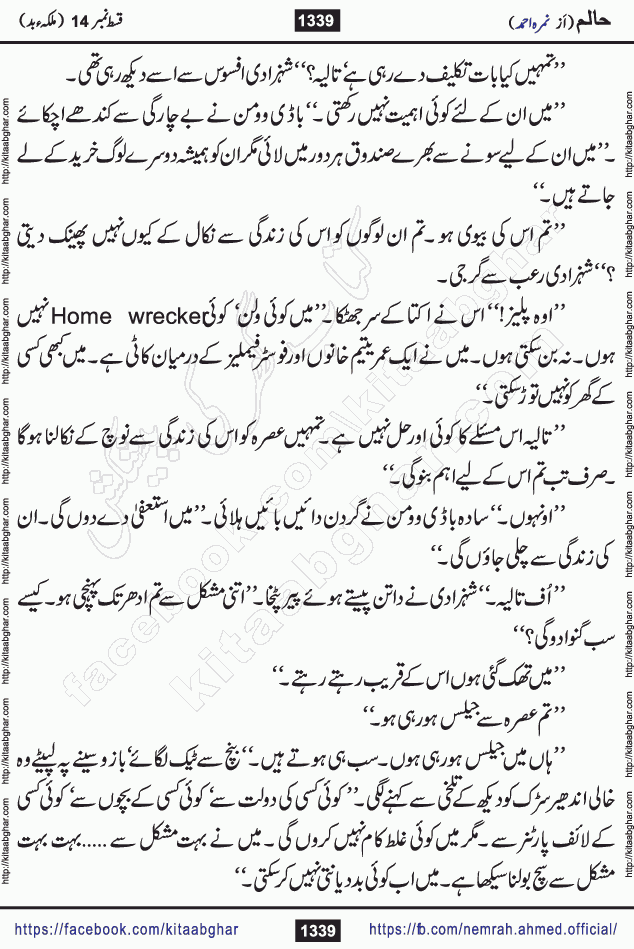 حالم (از نمرہ احمد)
1339
قسط نمبر 14 (ملکہء بد)
’’تمہیں کیا بات تکلیف دے رہی ہے‘ تالیہ؟‘‘ شہزادی افسوس سے اسے دیکھ رہی تھی۔
’’میں ان کے لئے کوئی اہمیت نہیں رکھتی۔‘‘ باڈی وومن نے بے چارگی سے کندھے اچکائے
۔’’میں ان کے لیے سونے سے بھرے صندوق ہر دور میں لائی مگر ان کو ہمیشہ دوسرے لوگ خرید کے لے
جاتے ہیں۔‘‘
’’تم اس کی بیوی ہو۔ تم ان لوگوں کو اس کی زندگی سے نکال کے کیوں نہیں پھینک دیتی
؟‘‘شہزادی رعب سے گرجی۔
’’اوہ پلیز!‘‘ اس نے اکتا کے سر جھٹکا۔’’میں کوئی ولن‘ کوئی Home wrecker نہیں
ہوں۔ نہ بن سکتی ہوں۔ میں نے ایک عمر یتیم خانوں اور فوسٹر فیملیز کے درمیان کاٹی ہے۔ میں کبھی کسی
کے گھر کو نہیں توڑ سکتی۔‘‘
’’تالیہ اس مسئلے کا کوئی اور حل نہیں ہے۔ تمہیں عصرہ کو اس کی زندگی سے نوچ کے نکالنا ہوگا
۔صرف تب تم اس کے لیے اہم بنو گی۔‘‘
’’اونہوں۔‘‘ سادہ باڈی وومن نے گردن دائیں بائیں ہلائی۔’’میں استعفیٰ دے دوں گی۔ ان
کی زندگی سے چلی جاؤں گی۔‘‘
’’اُف تالیہ۔‘‘ شہزادی نے دانت پیستے ہوئے پیر پٹخا۔’’اتنی مشکل سے تم ادھر تک پہنچی ہو۔ کیسے
سب گنوا دو گی؟‘‘
’’میں تھک گئی ہوں اس کے قریب رہتے رہتے۔‘‘
’’تم عصرہ سے جیلس ہو رہی ہو۔‘‘
’’ہاں میں جیلس ہو رہی ہوں۔ سب ہی ہوتے ہیں۔‘‘ بنچ سے ٹیک لگائے‘ بازو سینے پہ لپیٹے وہ
خالی اندھیر سڑک کو دیکھ کے تلخی سے کہنے لگی۔’’کوئی کسی کی دولت سے‘ کوئی کسی کے بچوں سے‘ کوئی کسی
کے لائف پارٹنر سے۔ مگر میں کوئی غلط کام نہیں کروں گی۔ میں نے بہت مشکل سے ..... بہت بہت
مشکل سے سچ بولنا سیکھا ہے۔ میں اب کوئی بددیانتی نہیں کر سکتی۔‘‘
https://facebook.com/kitaabghar
1339
https://fb.com/nemrah.ahmed.official/
http://kitaabghar.com
کتاب گھر کی پیشکش
facebook.com/kitaabghar
kitaabghar.com